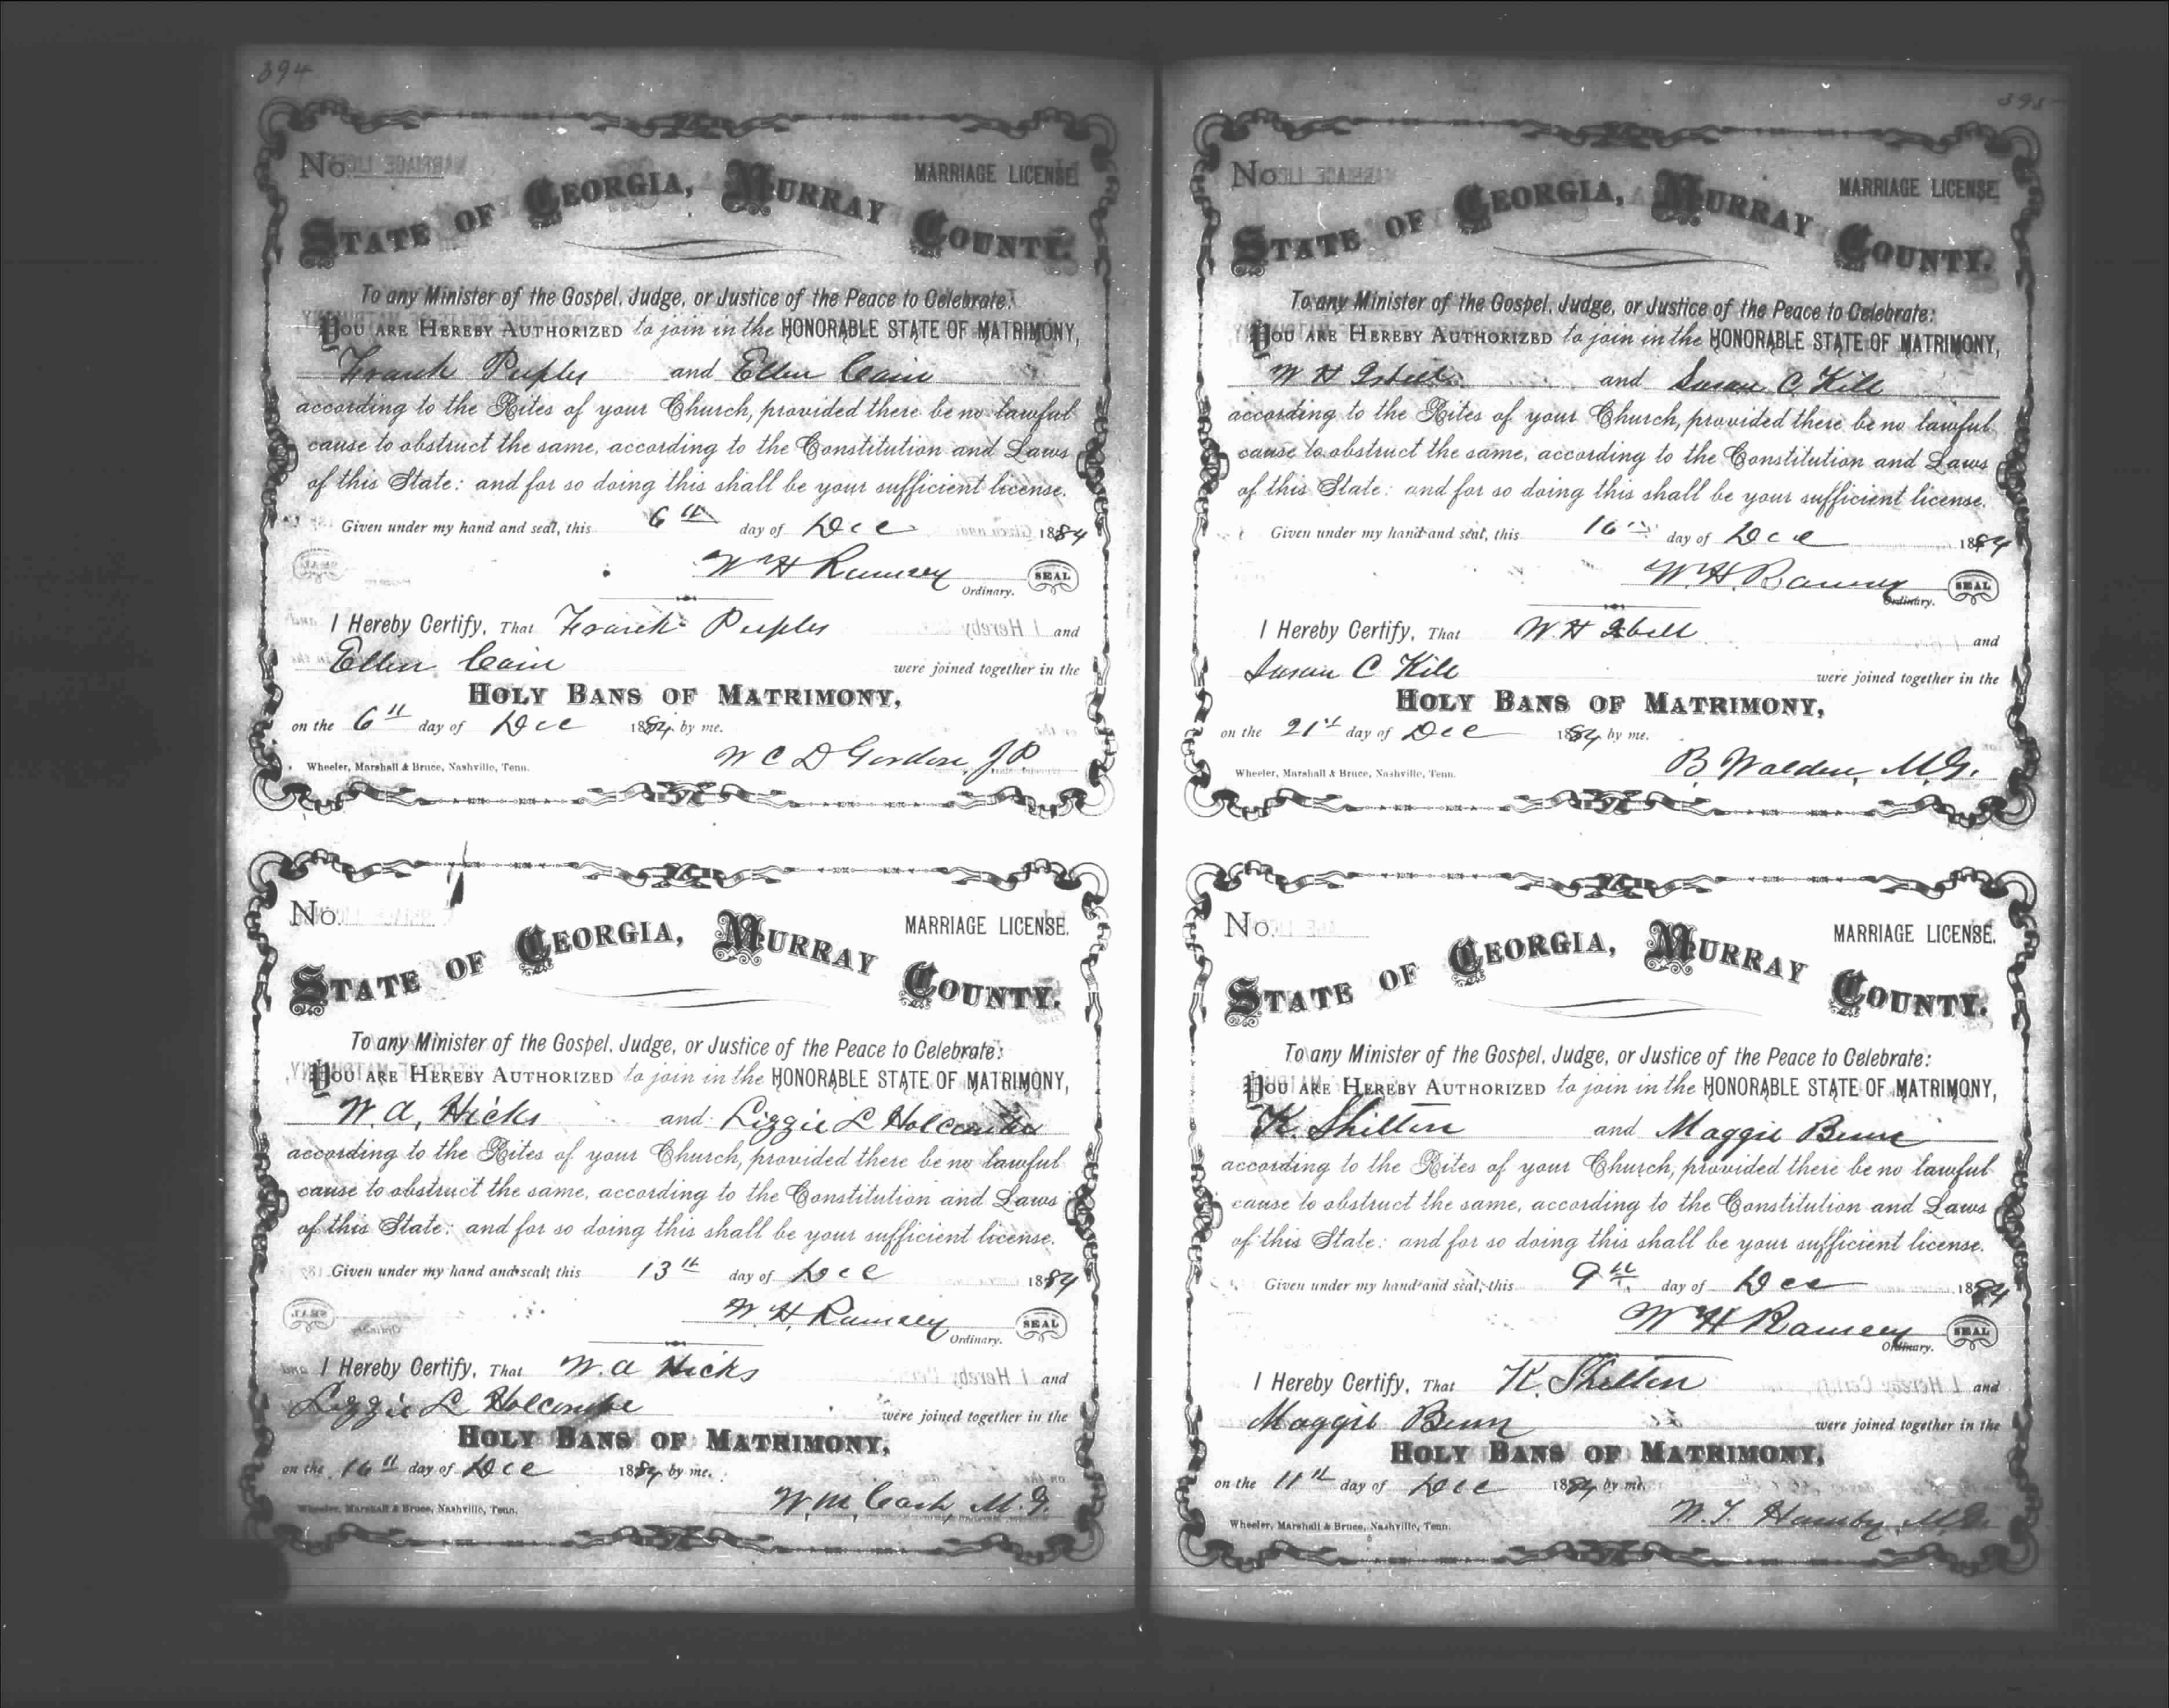 394
No. MARRIAGE LICENSE
STATE OF GEORGIA, MURRAY COUNTY.
To any Minister of the Gospel, Judge, or Justice of the Peace to Celebrate:
YOU ARE HEREBY AUTHORIZED to join in the HONORABLE STATE OF MATRIMONY,
Frank Peeples and Ellen Cain
according to the Rites of your Church, provided there be no lawful
cause to obstruct the same, according to the Constitution and Laws
of this State: and for so doing this shall be your sufficient license.
Given under my hand and seal, this 6th day of Dec 1884
W H Ramsey SEAL
Ordinary.
I Hereby Certify, That Frank Peeples and
Ellen Cain were joined together in the
HOLY BANS OF MATRIMONY,
on the 6th day of Dec 1884 by me.
W C D Gordon, JP
Wheeler, Marshall & Bruce, Nashville, Tenn.
No. MARRIAGE LICENSE.
STATE OF GEORGIA, MURRAY COUNTY.
To any Minister of the Gospel, Judge, or Justice of the Peace to Celebrate:
YOU ARE HEREBY AUTHORIZED to join in the HONORABLE STATE OF MATRIMONY,
W. A. Hicks and Lizzie L Holcombe
according to the Rites of your Church, provided there be no lawful
cause to obstruct the same, according to the Constitution and Laws
of this State: and for so doing this shall be your sufficient license.
Given under my hand and seal, this 13th day of Dec 1884
W. H. Ramsey SEAL
Ordinary.
I Hereby Certify, That W. A Hicks and
Lizzie L Holcombe were joined together in the
HOLY BANS OF MATRIMONY,
on the 16th day of Dec 1884 by me.
W. M. Cash, M. G.
Wheeler, Marshall & Bruce, Nashville, Tenn.
395
No. MARRIAGE LICENSE
STATE OF GEORGIA, MURRAY COUNTY.
To any Minister of the Gospel, Judge, or Justice of the Peace to Celebrate:
YOU ARE HEREBY AUTHORIZED to join in the HONORABLE STATE OF MATRIMONY,
W H Isbell and Susan C. Hill
according to the Rites of your Church, provided there be no lawful
cause to obstruct the same, according to the Constitution and Laws
of this State: and for so doing this shall be your sufficient license.
Given under my hand and seal, this 16th day of Dec 1884
W. H. Ramsey SEAL
Ordinary.
I Hereby Certify, That W H Isbell and
Susan C Hill were joined together in the
HOLY BANS OF MATRIMONY,
on the 21st day of Dec 1884 by me.
B. Walden, M.G.
Wheeler, Marshall & Bruce, Nashville, Tenn.
No. MARRIAGE LICENSE.
STATE OF GEORGIA, MURRAY COUNTY.
To any Minister of the Gospel, Judge, or Justice of the Peace to Celebrate:
YOU ARE HEREBY AUTHORIZED to join in the HONORABLE STATE OF MATRIMONY,
K. Shelton and Maggie
according to the Rites of your Church, provided there be no lawful
cause to obstruct the same, according to the Constitution and Laws
of this State: and for so doing this shall be your sufficient license.
Given under my hand and seal, this 9th day of Dec 1884
W H Ramsey SEAL
Ordinary.
I Hereby Certify, That K. Shelton and
Maggie were joined together in the
HOLY BANS OF MATRIMONY,
on the 11th day of Dec 1884 by me.
W. T. Hamby, M.G.
Wheeler, Marshall & Bruce, Nashville, Tenn.